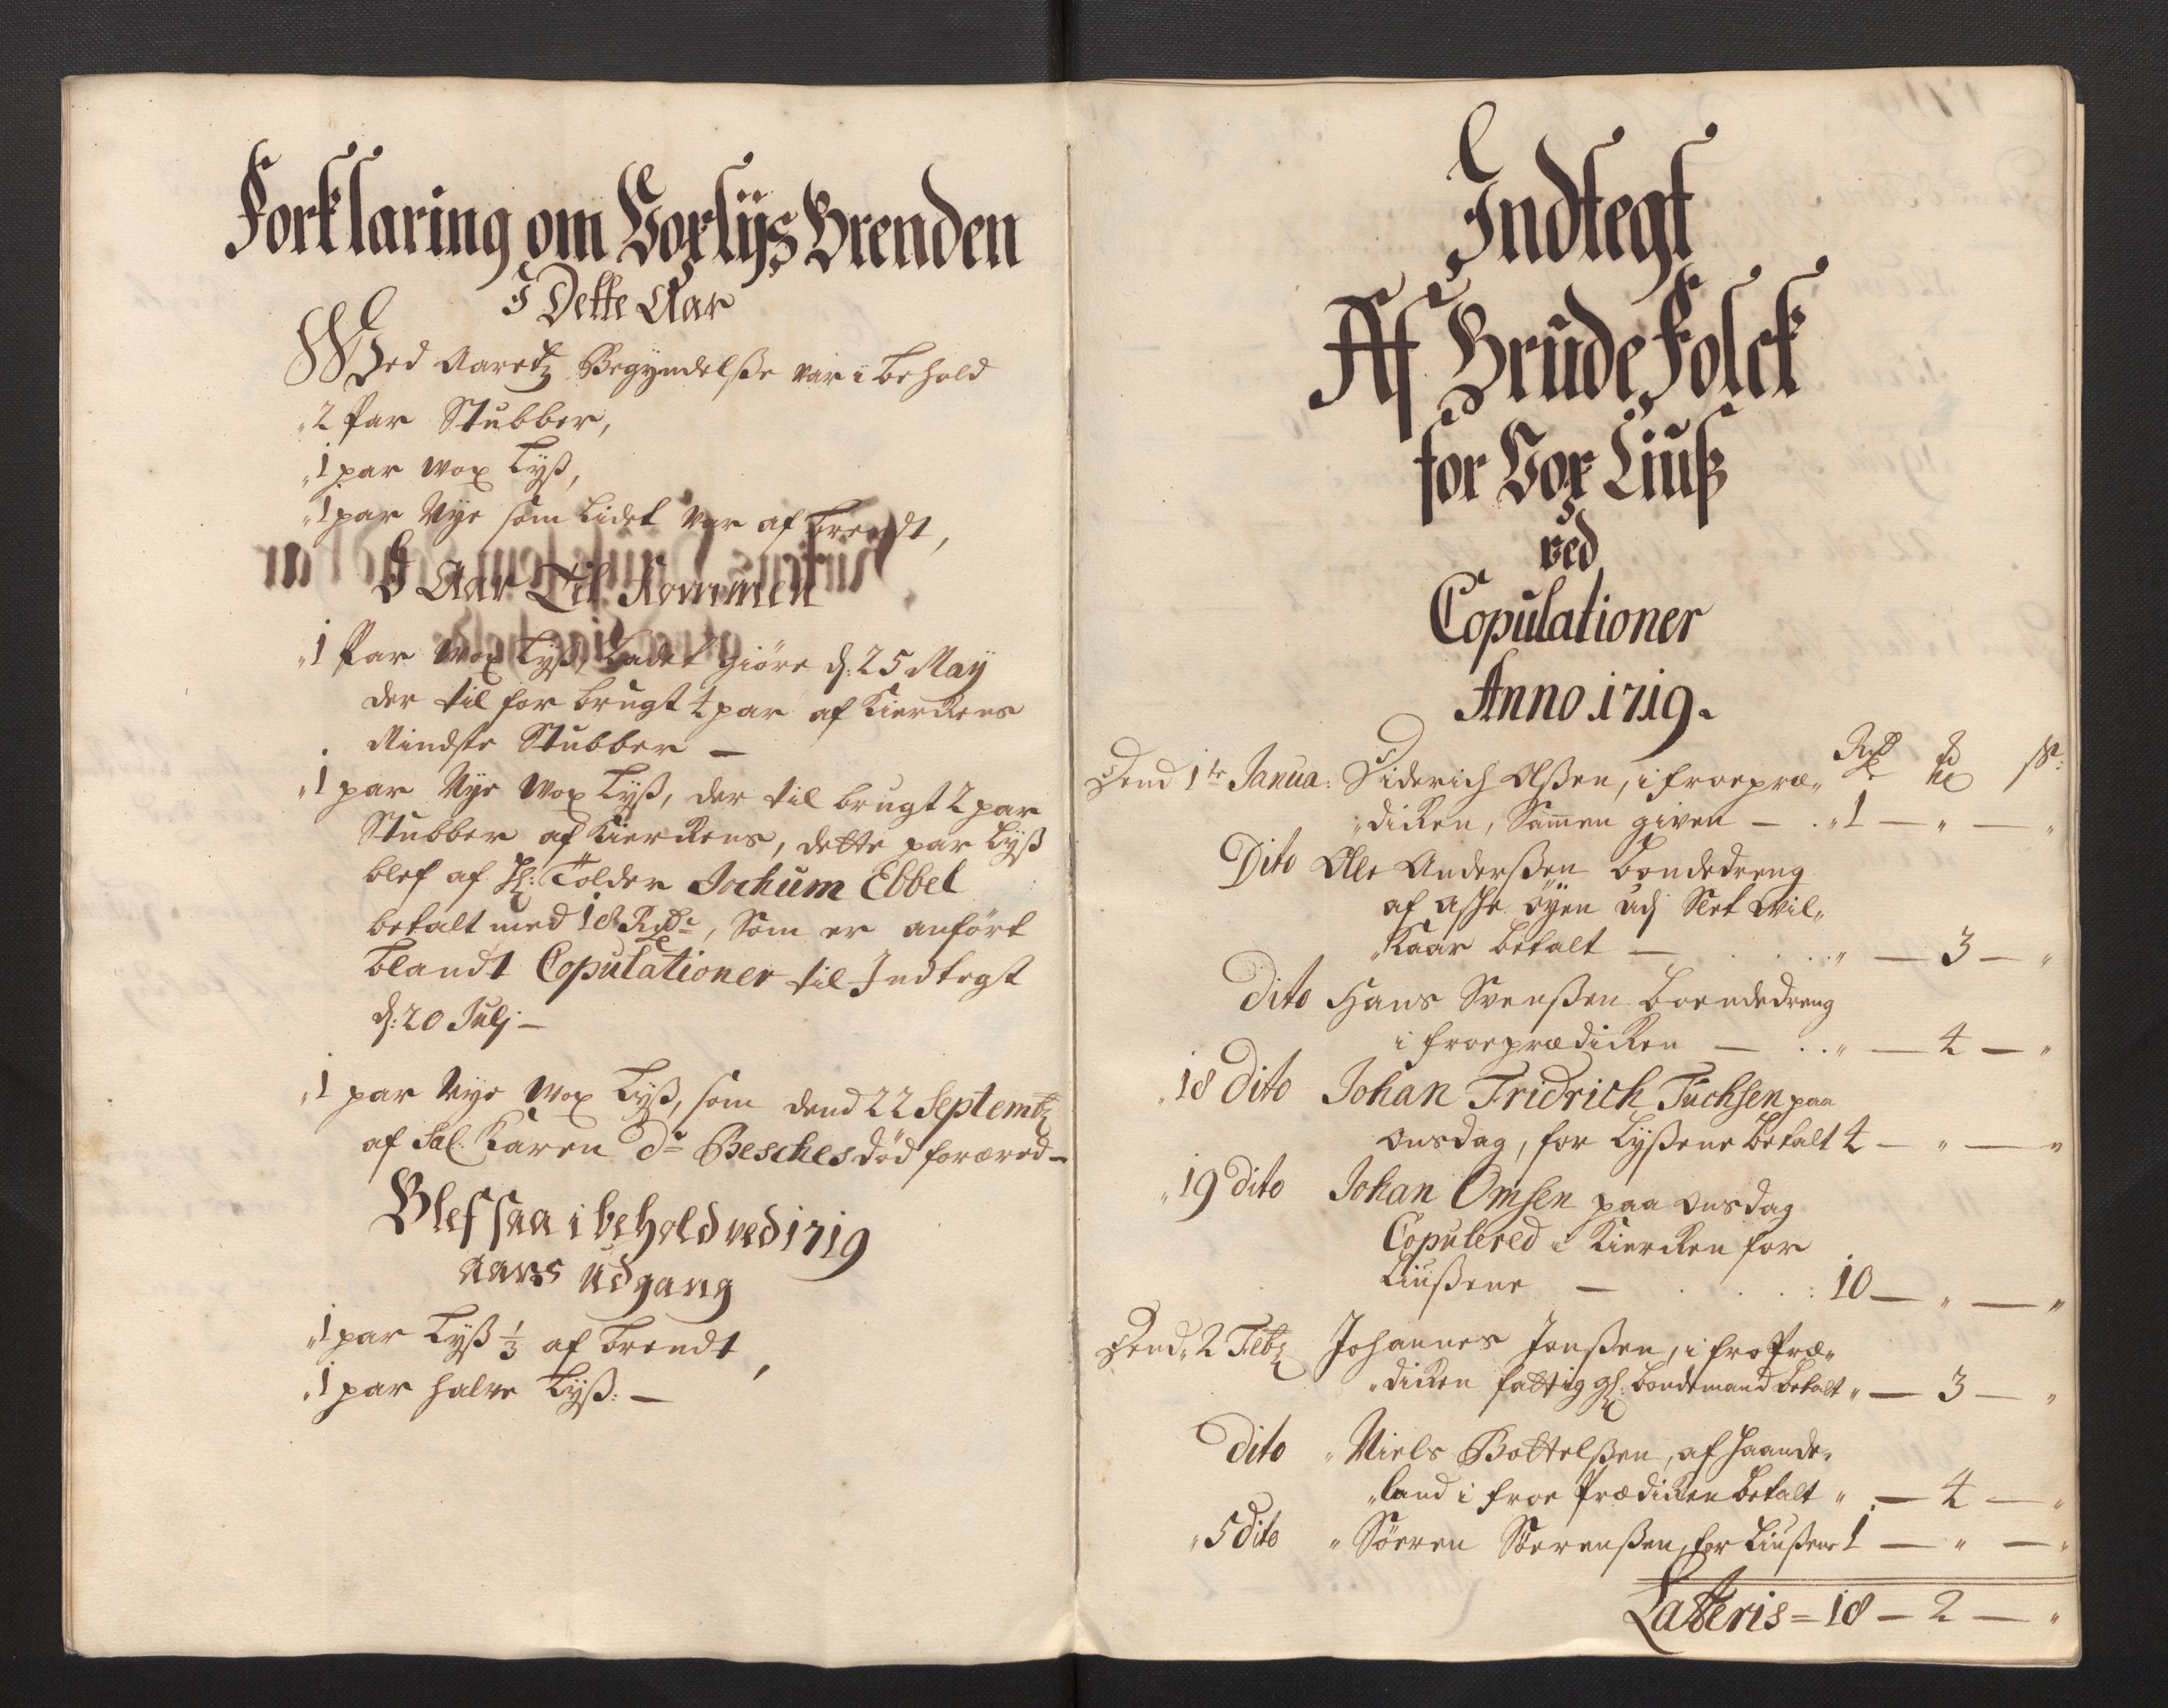 Forklaring om Voxlÿs Brenden
I Dette Aar
Wed Aaretz Begyndelße var i behold
2 Par Stubber,
1 par wox Lyß,
1 par Nye som lidet var af brendt,
I Aar Til Kommen
1 Par wox Lyß, Ladet giöre d: 25 Maÿ
der til for brugt 4 par af Kierkens
Mindste Stubber —
1 par Nye wox Lyß, der til brugt 2 par
Stubber af Kierkens, dette par Lyß
blef af Hr: Tolder Jochum Ebbel
betalt med 18 Rdr, som er anfört
blandt Copulationer til Indtegt
d: 20 Julj —
1 par Nye Wox Lyß, som dend 22 Septembr
af Sal. Karen Besches död foræred —
Blef saa i behold ved 1719
Aars Udgang
1 par Lyß 1/3 af brendt,
1 par halve Lyß: —
Indtegt
Af Brude Folck
for Vox Liuß
ved
Copulationer
Anno 1719.
Rdr mk s:
Dend 1te Janua: Diderich Olßen, i froepræ„
„diken, Sammen given — 1 — „ — „
Dito Ole Anderßen bondedreng
af Askeöyen udj Slet Vil„
„kaar betalt — „ — 3 — „
Dito Hans Svenßen bondedreng
i froeprædiken — „ — 4 — „
18 Dito Johan Fridrich Fuchsen paa
onsdag, for Lyßene betalt 4 — „ — „
19 dito Johan Omsen paa onsdag
Copulered i Kierken for
Liußene — 10 — „ — „
Dend 2 Febr Johannes Jonßen, i froPræ„
„diken fattig gl: bondemand betalt „ — 3 — „
Dito „ Niels Bottelßen, af Haande„
„land i froe Prædiken betalt „ — 4 — „
5 dito „ Sören Sörenßen, for Liußene 1 — „ — „
Latteris = 18 — 2 — „